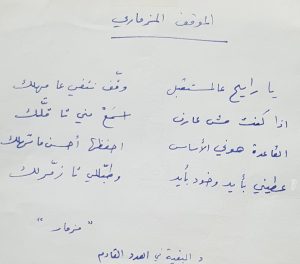 الموقف المزماري
يا رايح عالمستقبل وقّف نتفي عا مهلك
اذا كنت مش عارف اسمَعْ مني تا قلّك
القاعدة هوني الأساس احفظها أحسن ما تهلك
عطيني بأيد وخود بأيد وطبّللي تا زمّرلك
" مزمار "
و البقية في العدد القادم